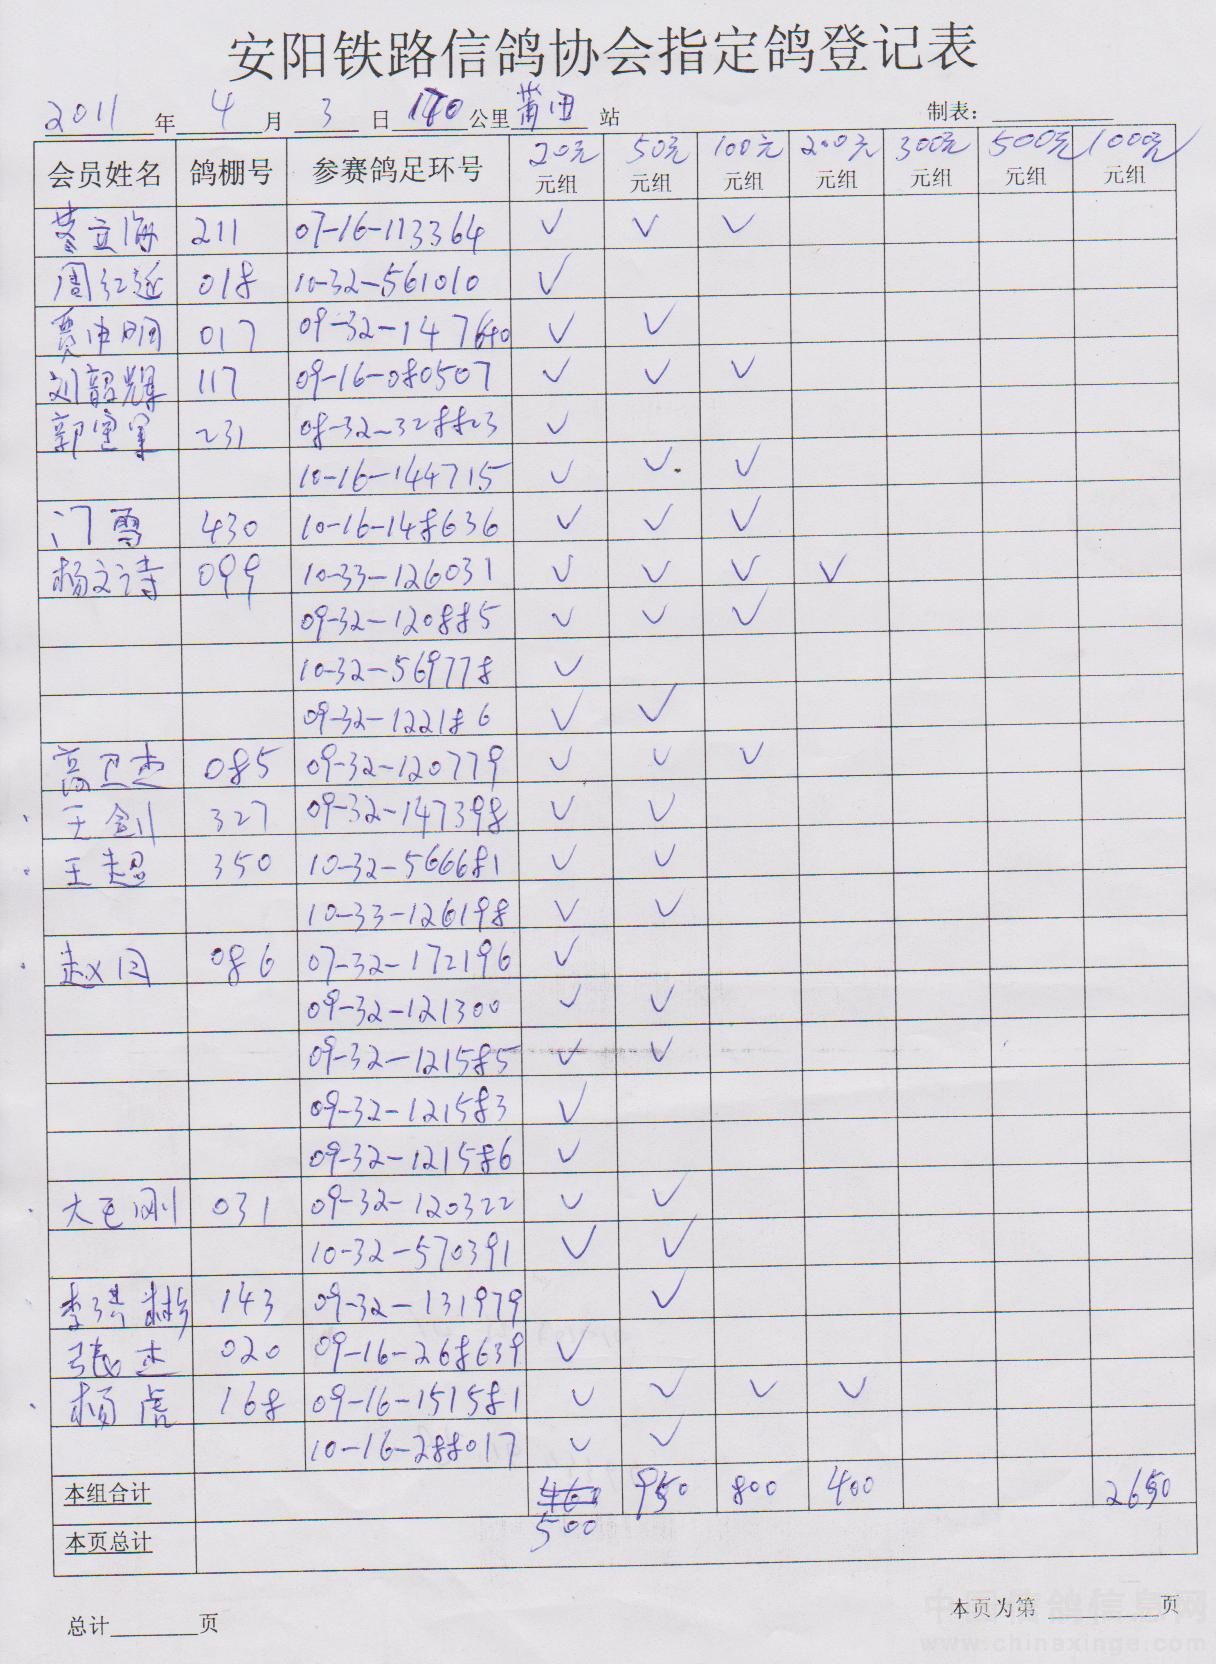 安阳铁路信鸽协会指定鸽登记表
2011年4月3日140公里莆田站 制表:
会员姓名 鸽棚号 参赛鸽足环号 20元元组 50元元组 100元元组 200元元组 300元元组 500元元组 1000元元组
211 07-16-113364 ✓ ✓ ✓
周红延 018 10-32-561010 ✓
贾中明 017 09-32-147640 ✓ ✓
刘韶辉 117 09-16-080507 ✓ ✓ ✓
郭军军 231 08-32-328823 ✓
10-16-144715 ✓ ✓ ✓
门雪 430 10-16-148636 ✓ ✓ ✓
杨文诗 099 10-33-126031 ✓ ✓ ✓ ✓
09-32-120885 ✓ ✓ ✓
10-32-569778 ✓
09-32-122186 ✓ ✓
高卫杰 085 09-32-120779 ✓ ✓ ✓
王剑 327 09-32-147398 ✓ ✓
王超 350 10-32-566681 ✓ ✓
10-33-126198 ✓ ✓
赵因 086 07-32-172196 ✓
09-32-121300 ✓ ✓
09-32-121585 ✓ ✓
09-32-121583 ✓
09-32-121586 ✓
大毛刚 031 09-32-120322 ✓ ✓
10-32-570391 ✓ ✓
李洪彬 143 09-32-131979 ✓
张杰 020 09-16-268639 ✓
杨虎 168 09-16-151581 ✓ ✓ ✓ ✓
10-16-288017 ✓ ✓
本组合计 460 950 800 400 2650
500
本页总计
总计 页 本页为第 页
中国信鸽信息网
www.chinaxinge.com